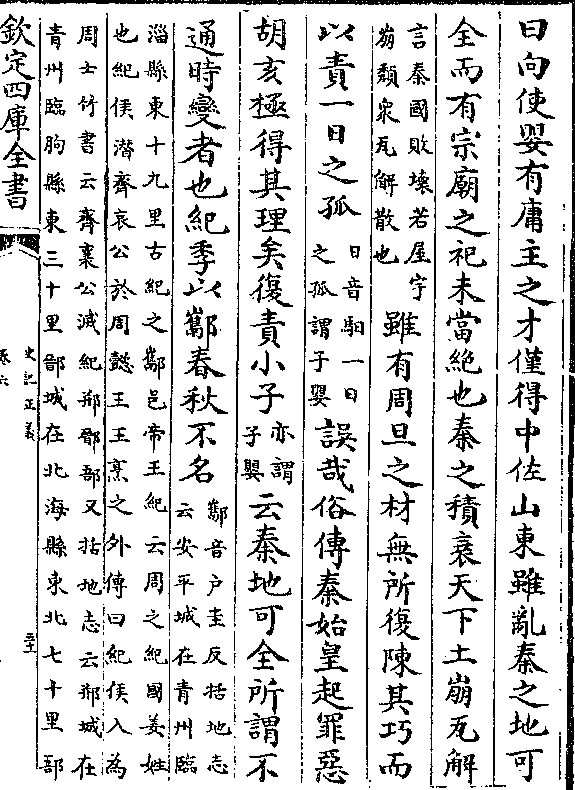 曰向使嬰有庸主之才僅得中佐山東雖亂秦之地可
全而有宗廟之祀未當絶也秦之積衰天下土崩瓦解
言秦國敗壞若屋宇
崩頽衆瓦解散也
雖有周旦之材無所復陳其巧而
以責一日之孤
日音馹一日
之孤謂子嬰
誤哉俗傳秦始皇起罪惡
胡亥極得其理矣復責小子
亦謂
子嬰
云秦地可全所謂不
通時變者也紀季以酅春秋不名
酅音户圭反括地志
云安平城在青州臨
淄縣東十九里古紀之酅邑帝王紀云周之紀國姜姓
也紀侯濳齊哀公於周懿王王烹之外傳曰紀侯入為
周士竹書云齊襄公滅紀郱鄑郚又括地志云郱城在
青州臨朐縣東三十里鄑城在北海縣東北七十里郚
欽定四庫全書
史記正義
卷六